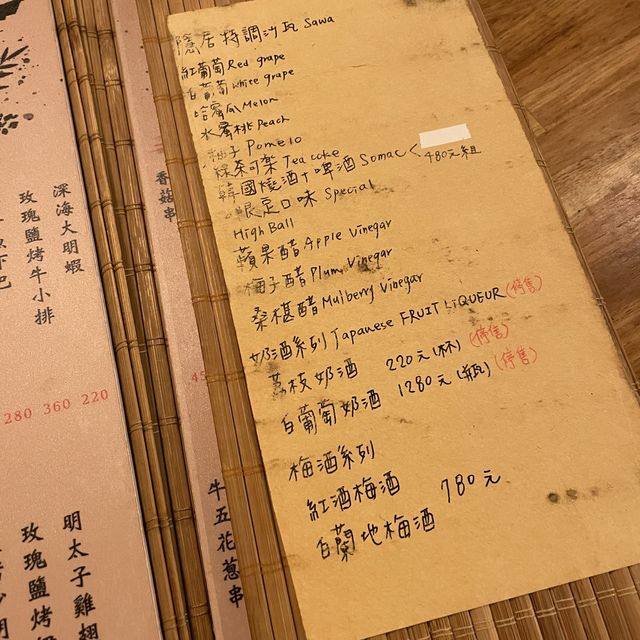 隱居特調沙瓦 Sawa
紅葡萄 Red grape
白葡萄 white grape
哈蜜瓜 Melon
水蜜桃 Peach
柚子 Pomelo
綠奈可樂 Tea coke
韓國燒酒+啤酒 Somac < 480元組
限定口味 Special
High Ball
蘋果醋 Apple Vinegar
梅子醋 Plum Vinegar
桑椹醋 Mulberry Vinegar
奶酒系列 Japanese FRUIT LiQUEUR (停售)
荔枝奶酒 220元(杯) (停售)
白葡萄奶酒 1280元(瓶) (停售)
梅酒系列
紅酒梅酒 780元
白蘭地梅酒
深海大明蝦
玫瑰鹽烤牛小排
280 360 220
明太子雞翅
玫瑰鹽烤
香菇串
45
牛五花蔥串